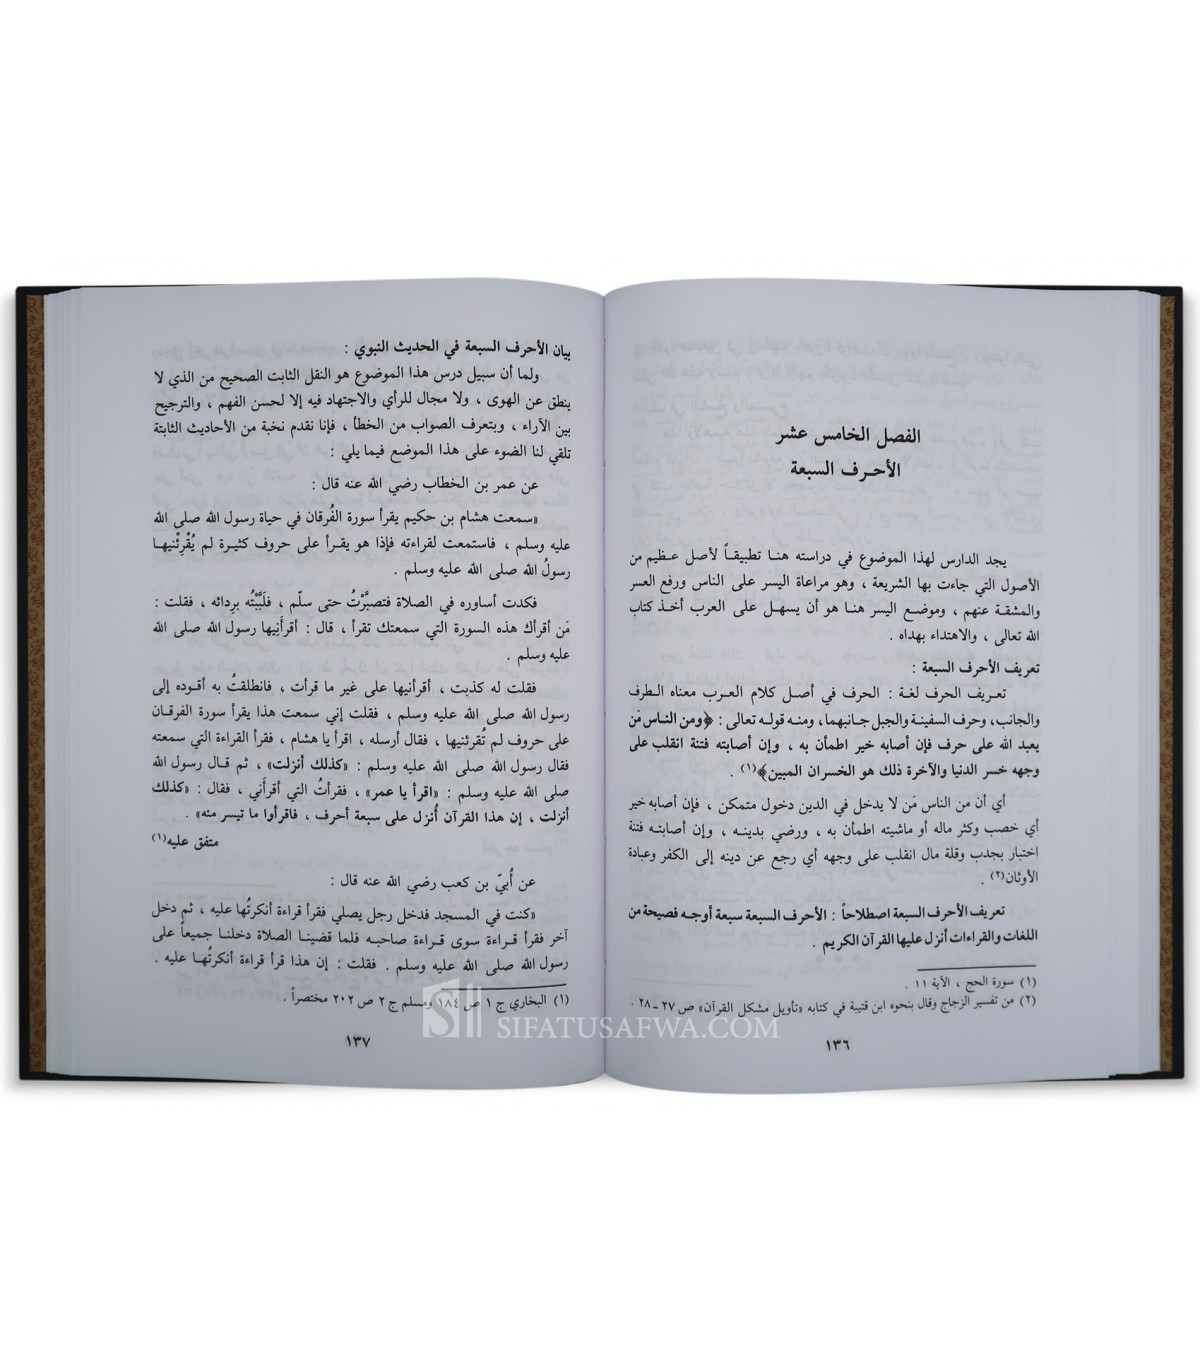 الفصل الخامس عشر
الأحرف السبعة
يجد الدارس لهذا الموضوع في دراسته هنا تطبيقاً لأصل عظيم من
الأصول التي جاءت بها الشريعة ، وهو مراعاة اليسر على الناس ورفع العسر
والمشقة عنهم ، وموضع اليسر هنا هو أن يسهل على العرب أخذ كتاب
الله تعالى ، والاهتداء بهداه .
تعريف الأحرف السبعة :
تعريف الحرف لغة : الحرف في أصل كلام العرب معناه الطرف
والجانب، وحرف السفينة والجبل جانبهما، ومنه قوله تعالى : ﴿ومن الناس مَن
يعبد الله على حرف فإن أصابه خير اطمأن به ، وإن أصابته فتنة انقلب على
وجهه خسر الدنيا والآخرة ذلك هو الخسران المبين﴾(١) .
أي أن من الناس مَن لا يدخل في الدين دخول متمكن ، فإن أصابه خير
أي خصب وكثر ماله أو ماشيته اطمأن به ، ورضي بدينه ، وإن أصابته فتنة
اختبار بجدب وقلة مال انقلب على وجهه أي رجع عن دينه إلى الكفر وعبادة
الأوثان(٢) .
تعريف الأحرف السبعة اصطلاحاً : الأحرف السبعة سبعة أوجه فصيحة من
اللغات والقراءات أنزل عليها القرآن الكريم .
(١) سورة الحج ، الآية ١١ .
(٢) من تفسير الزجاج وقال بنحوه ابن قتيبة في كتابه «تأويل مشكل القرآن» ص ٢٧ ـ ٢٨ .
١٣٦
بيان الأحرف السبعة في الحديث النبوي :
ولما أن سبيل درس هذا الموضوع هو النقل الثابت الصحيح من الذي لا
ينطق عن الهوى ، ولا مجال للرأي والاجتهاد فيه إلا لحسن الفهم ، والترجيح
بين الآراء ، وبتعرف الصواب من الخطأ ، فإنا نقدم نخبة من الأحاديث الثابتة
تلقي لنا الضوء على هذا الموضع فيما يلي :
عن عمر بن الخطاب رضي الله عنه قال :
«سمعت هشام بن حكيم يقرأ سورة الفُرقان في حياة رسول الله صلى الله
عليه وسلم ، فاستمعت لقراءته فإذا هو يقرأ على حروف كثيرة لم يُقْرِئْنيها
رسولُ الله صلى الله عليه وسلم .
فكدت أساوره في الصلاة فتصبَّرْتُ حتى سلّم ، فلَبَّبْتُه بردائه ، فقلت :
مَن أقرأك هذه السورة التي سمعتك تقرأ ، قال : أقرأنِيها رسول الله صلى الله
عليه وسلم .
فقلت له كذبت ، أقرأنيها على غير ما قرأت ، فانطلقتُ به أقوده إلى
رسول الله صلى الله عليه وسلم ، فقلت إني سمعت هذا يقرأ سورة الفرقان
على حروف لم تُقرئنيها ، فقال أرسله ، اقرأ يا هشام ، فقرأ القراءة التي سمعته
فقال رسول الله صلى الله عليه وسلم : «كذلك أنزلت» ، ثم قال رسول الله
صلى الله عليه وسلم : «اقرأ يا عمر» ، فقرأتُ التي أقرأني ، فقال : «كذلك
أنزلت ، إن هذا القرآن أُنزل على سبعة أحرف ، فاقرأوا ما تيسر منه» .
متفق عليه(١)
عن أُبيّ بن كعب رضي الله عنه قال :
«كنت في المسجد فدخل رجل يصلي فقرأ قراءة أنكرتُها عليه ، ثم دخل
آخر فقرأ قراءة سوى قراءة صاحبه فلما قضينا الصلاة دخلنا جميعاً على
رسول الله صلى الله عليه وسلم . فقلت : إن هذا قرأ قراءة أنكرتُها عليه .
(١) البخاري ج ١ ص ١٨٤ ومسلم ج ٢ ص ٢٠٢ مختصراً .
١٣٧
SIFATUSAFWA.COM